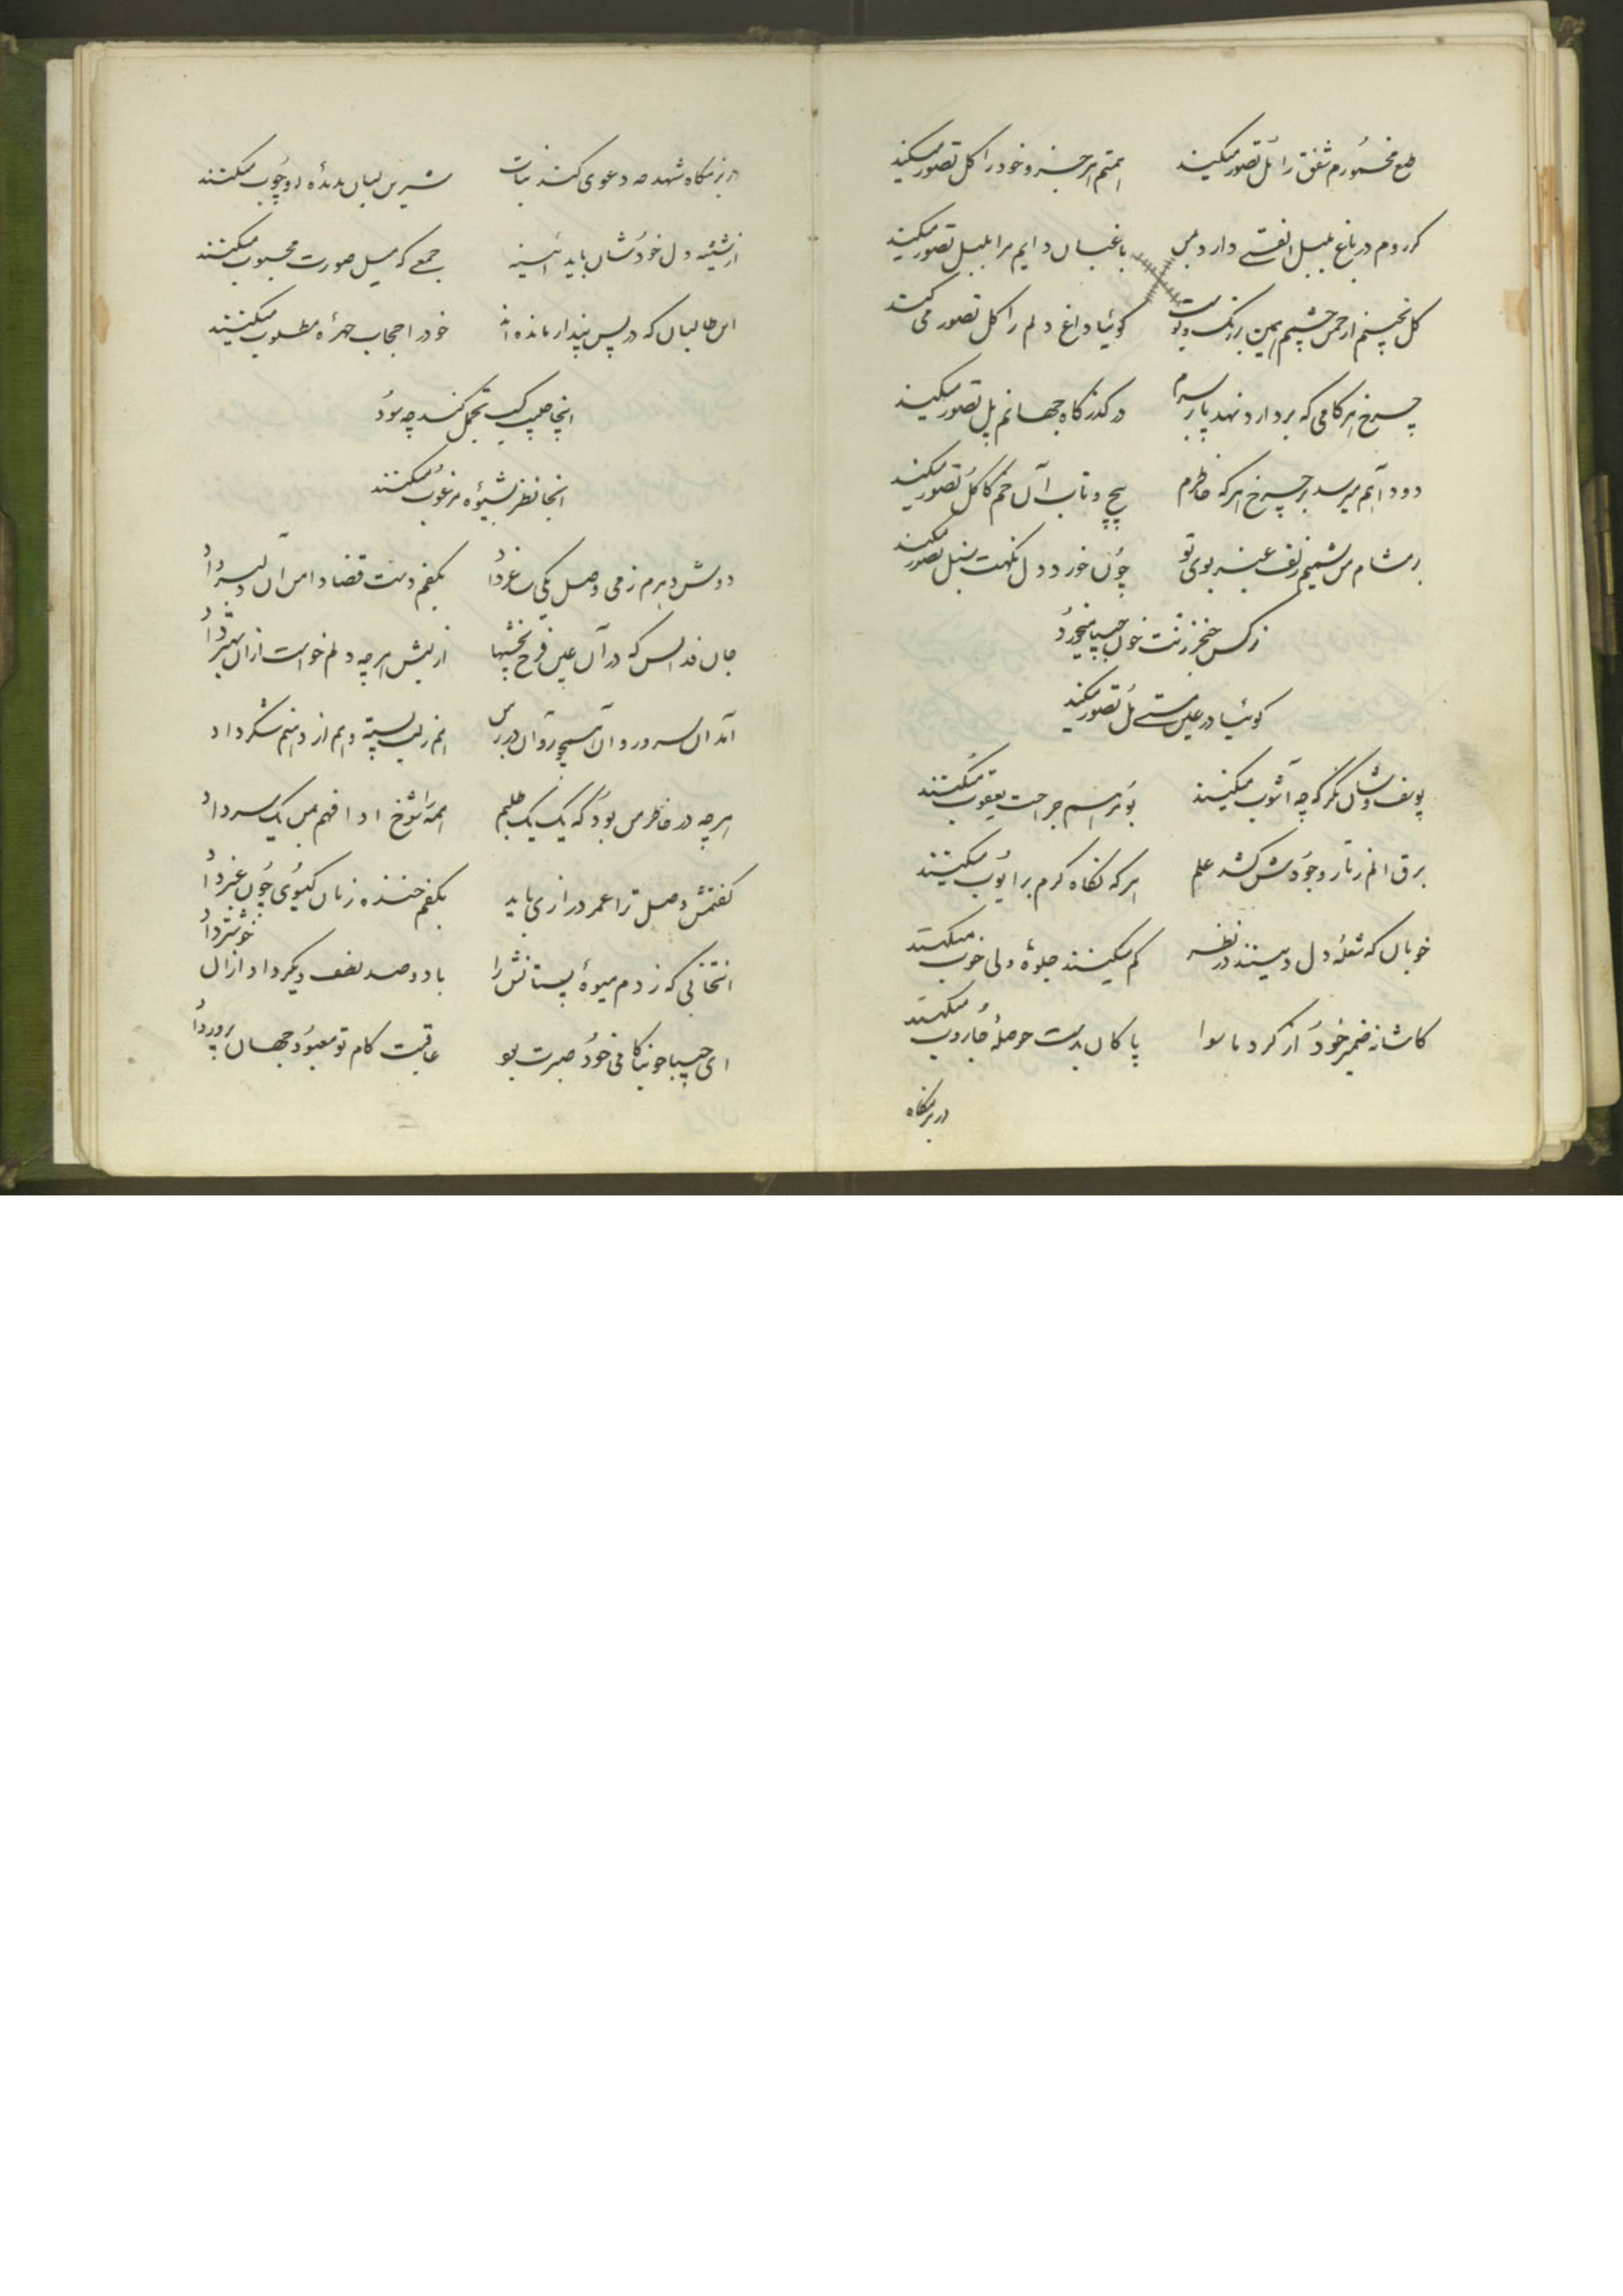 طبع مخمورم شفق را مُل تصور میکند همتم هر جزو خود را کل تصور میکند
کر روم در باغ بلبل الفتے دارد بمن باغبان دایم مرا بلبل تصور میکند
کل نچینم از چمن چشمم همین بر رنک و بوست کوئیا داغ دلم را کل تصور می کند
چرخ هر کامی که بردارد نهد پا بر سرم در کذرکاه جهانم پل تصور میکند
دود آهم میرسد بر چرخ هر که خاطرم پیچ و تاب آن خم کاکُل تُصور میکند
بر مشام من شمیم زلف عنبر بوی تو چُون خورد دل نکهت سنبل تصور میکند
نرکس خنجر زنت خون میخورد
کوئیا در عین مستے مُل تُصور میکند
یوسف وشان نکر که چه آشوب میکنند جراحت یعقوب میکنند
برق الم ز تار وجُودش کشد علم هر که نکاه کرم بر ایُوب میکنند
خوبان که شعله دل در نظر کم میکنند جلوهٔ ولی خوب میکنند
کاشانه ضمیر خودُ از کرد ما سوا پاکان بدست حوصلهٔ جاروب میکنند
در بزمکاه
در بزمکاه شهد چه دعوی کند نبات شیرین لبان میکنند
از شیشه دل خودُشان باید آئینه جمعے که میل صورت محبوب میکنند
این طالبان که در پس پندار مانده اند خود را حجاب چهرهٔ مطلوب میکنند
اینجا تجمل کند چه سوُد
اینجا نظر بشیوُه مرغوُب میکنند
دوش در بزم ز می وصل یکی ساغر داد بکفم دست قضا دامن آن دلبر داد
جان فدا بس که در آن عین فرح بخشیها از لبش هر چه دلم خواست از آن بهتر داد
آمد آن سرو روان همچو روان در بر من هم ز لب پسته و هم از دهنم شکر داد
هر چه در خاطر من بوُد که یک یک طلبم همه را شوخ ادا فهم بمن یکسر داد
کفتمش وصل ترا عمر درازی باید بکفم خنده زنان کیسُوی چُون عنبر داد
انتخابی که زدم میوهٔ پستانش را با دو صد لطف دیکر داد از آن خوشتر داد
ای عاقبت کام تو معبوُد جهان پرور داد